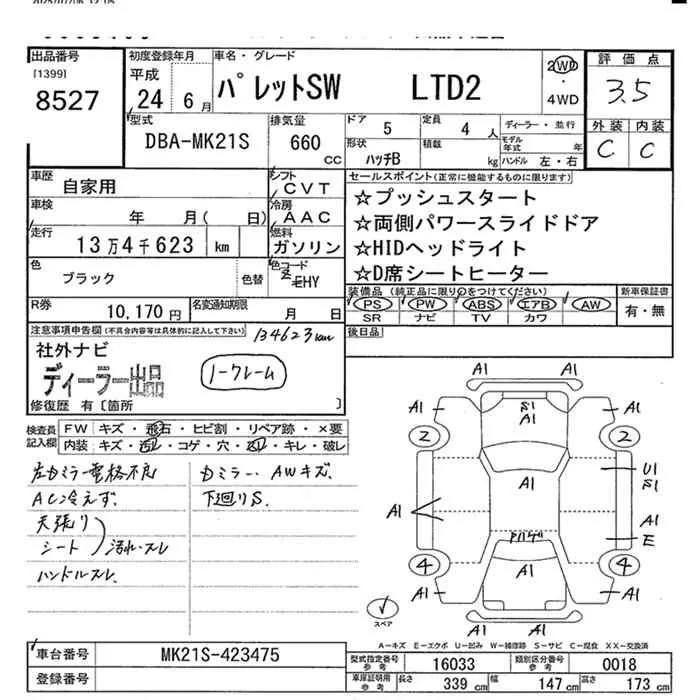 2025/07/06 12:16
出品番号
[1399]
8527
初度登録年月
平成
24 6月
車名・グレード
パレットSW LTD2
2WD
・
4WD
評価点
3.5
外装 内装
C C
型式
DBA-MK21S
排気量
660
CC
ドア
5
定員
4 人
ディーラー・並行
形状
ハッチB
積載
kg
モデル年式 年
ハンドル 左・右
車歴
自家用
シフト
CVT
車検
年 月(日)
冷房
AAC
走行
13万4千623 km
燃料
ガソリン
色
ブラック
色替
色コード
ZEHY
R券
10,170円
名変通知期限
月 日
セールスポイント(正常に機能するものに限ります)
☆プッシュスタート
☆両側パワースライドドア
☆HIDヘッドライト
☆D席シートヒーター
装備品(純正品に限り○をつけてください)
PS PW ABS エアB AW
SR ナビ TV カワ
新車保証書
有・無
後日品
注意事項申告欄(不具合内容等は具体的に記入して下さい)
134623km
社外ナビ
ディーラー出品
ノークレーム
修復歴 有〔箇所 〕
検査員
記入欄
FW キズ・飛石・ヒビ割・リペア跡・×要
内装 キズ・汚れ・コゲ・穴・スレ・キレ・破レ
左右ミラー電格不良
AC冷えず.
天張り
シート
汚れ・スレ
ハンドルスレ.
カミラー、AWキズ.
下廻りS.
A1
A1
S1
A1
A1
2
2
A1
U1
S1
A1
A1
E
A1
4
4
A1
A1
A1
スペア
A1
A-キズ E-エクボ U-凹み W-補修跡 S-サビ C-腐食 XX-交換済
車台番号
MK21S-423475
登録番号
型式指定番号
参考
16033
類別区分番号
参考
0018
車庫証明用
参考
長さ
339 cm
幅
147 cm
高さ
173 cm